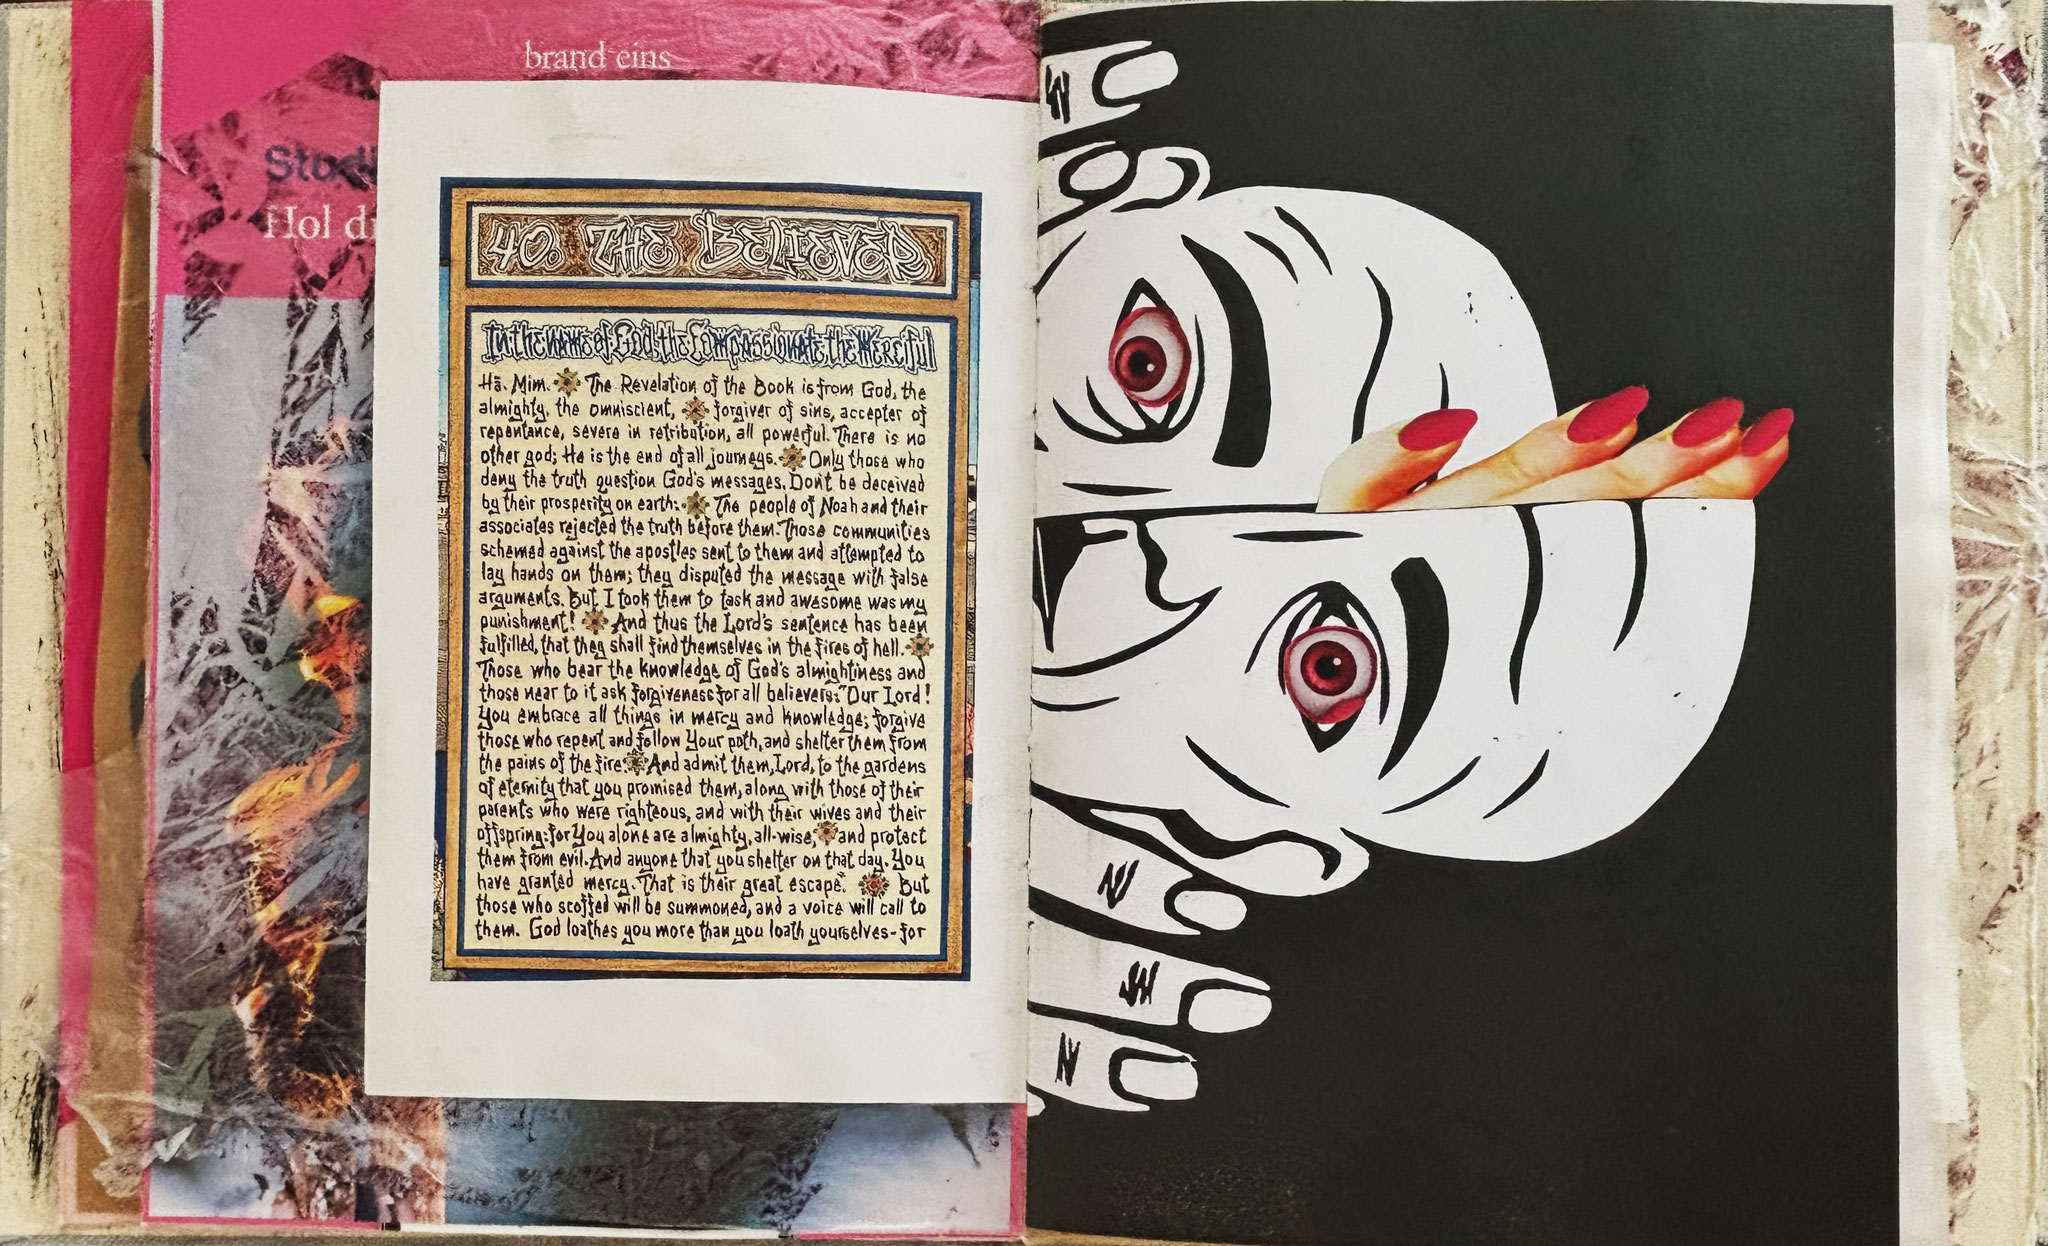 brand eins
Hol
40. THE BELIEVER
In the name of God, the Compassionate, the Merciful
Hā. Mim. The Revelation of the Book is from God, the
almighty, the omniscient, forgiver of sins, accepter of
repentance, severe in retribution, all powerful. There is no
other god; He is the end of all journeys. Only those who
deny the truth question God's messages. Don't be deceived
by their prosperity on earth: The people of Noah and their
associates rejected the truth before them. Those communities
schemed against the apostles sent to them and attempted to
lay hands on them; they disputed the message with false
arguments. But I took them to task and awesome was my
punishment! And thus the Lord's sentence has been
fulfilled, that they shall find themselves in the fires of hell.
Those who bear the knowledge of God's almightiness and
those near to it ask forgiveness for all believers: "Our Lord!
You embrace all things in mercy and knowledge; forgive
those who repent and follow Your path, and shelter them from
the pains of the fire. And admit them, Lord, to the gardens
of eternity that you promised them, along with those of their
parents who were righteous, and with their wives and their
offspring: for You alone are almighty, all-wise, and protect
them from evil. And anyone that you shelter on that day. You
have granted mercy. That is their great escape." But
those who scoffed will be summoned, and a voice will call to
them. God loathes you more than you loath yourselves - for